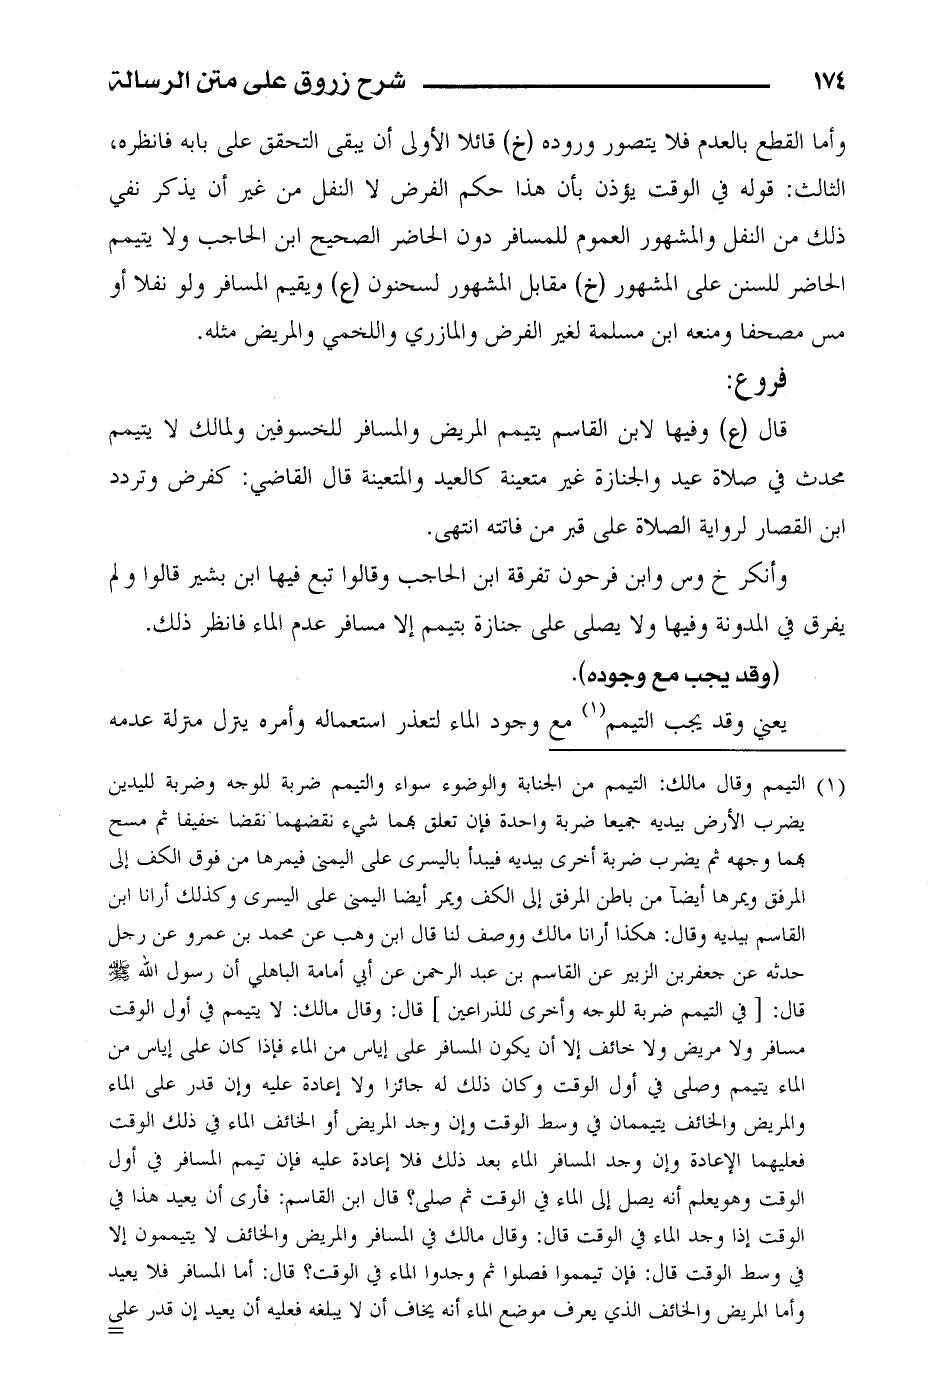 ١٧٤ شرح زروق على متن الرسالة
وأما القطع بالعدم فلا يتصور وروده (خ) قائلا الأولى أن يبقى التحقق على بابه فانظره،
الثالث: قوله في الوقت يؤذن بأن هذا حكم الفرض لا النفل من غير أن يذكر نفي
ذلك من النفل والمشهور العموم للمسافر دون الحاضر الصحيح ابن الحاجب ولا يتيمم
الحاضر للسنن على المشهور (خ) مقابل المشهور لسحنون (ع) ويقيم المسافر ولو نفلا أو
مس مصحفا ومنعه ابن مسلمة لغير الفرض والمازري واللخمي والمريض مثله.
فروع:
قال (ع) وفيها لابن القاسم يتيمم المريض والمسافر للخسوفين ولمالك لا يتيمم
محدث في صلاة عيد والجنازة غير متعينة كالعيد والمتعينة قال القاضي: كفرض وتردد
ابن القصار لرواية الصلاة على قبر من فاتته انتهى.
وأنكر خ وس وابن فرحون تفرقة ابن الحاجب وقالوا تبع فيها ابن بشير قالوا و لم
يفرق في المدونة وفيها ولا يصلى على جنازة بتيمم إلا مسافر عدم الماء فانظر ذلك.
(وقد يجب مع وجوده).
يعني وقد يجب التيمم(١) مع وجود الماء لتعذر استعماله وأمره ينزل منزلة عدمه
(١) التيمم وقال مالك: التيمم من الجنابة والوضوء سواء والتيمم ضربة للوجه وضربة لليدين
يضرب الأرض بيديه جميعا ضربة واحدة فإن تعلق بهما شيء نقضهما نقضا خفيفا ثم مسح
بهما وجهه ثم يضرب ضربة أخرى بيديه فيبدأ باليسرى على اليمنى فيمرها من فوق الكف إلى
المرفق ويمرها أيضآ من باطن المرفق إلى الكف ويمر أيضا اليمنى على اليسرى وكذلك أرانا ابن
القاسم بيديه وقال: هكذا أرانا مالك ووصف لنا قال ابن وهب عن محمد بن عمرو عن رجل
حدثه عن جعفربن الزبير عن القاسم بن عبد الرحمن عن أبي أمامة الباهلي أن رسول الله ﷺ
قال: [ في التيمم ضربة للوجه وأخرى للذراعين ] قال: وقال مالك: لا يتيمم في أول الوقت
مسافر ولا مريض ولا خائف إلا أن يكون المسافر على إياس من الماء فإذا كان على إياس من
الماء يتيمم وصلى في أول الوقت وكان ذلك له جائزا ولا إعادة عليه وإن قدر على الماء
والمريض والخائف يتيممان في وسط الوقت وإن وجد المريض أو الخائف الماء في ذلك الوقت
فعليهما الإعادة وإن وجد المسافر الماء بعد ذلك فلا إعادة عليه فإن تيمم المسافر في أول
الوقت وهويعلم أنه يصل إلى الماء في الوقت ثم صلى؟ قال ابن القاسم: فأرى أن يعيد هذا في
الوقت إذا وجد الماء في الوقت قال: وقال مالك في المسافر والمريض والخائف لا يتيممون إلا
في وسط الوقت قال: فإن تيمموا فصلوا ثم وجدوا الماء في الوقت؟ قال: أما المسافر فلا يعيد
وأما المريض والخائف الذي يعرف موضع الماء أنه يخاف أن لا يبلغه فعليه أن يعيد إن قدر على
=